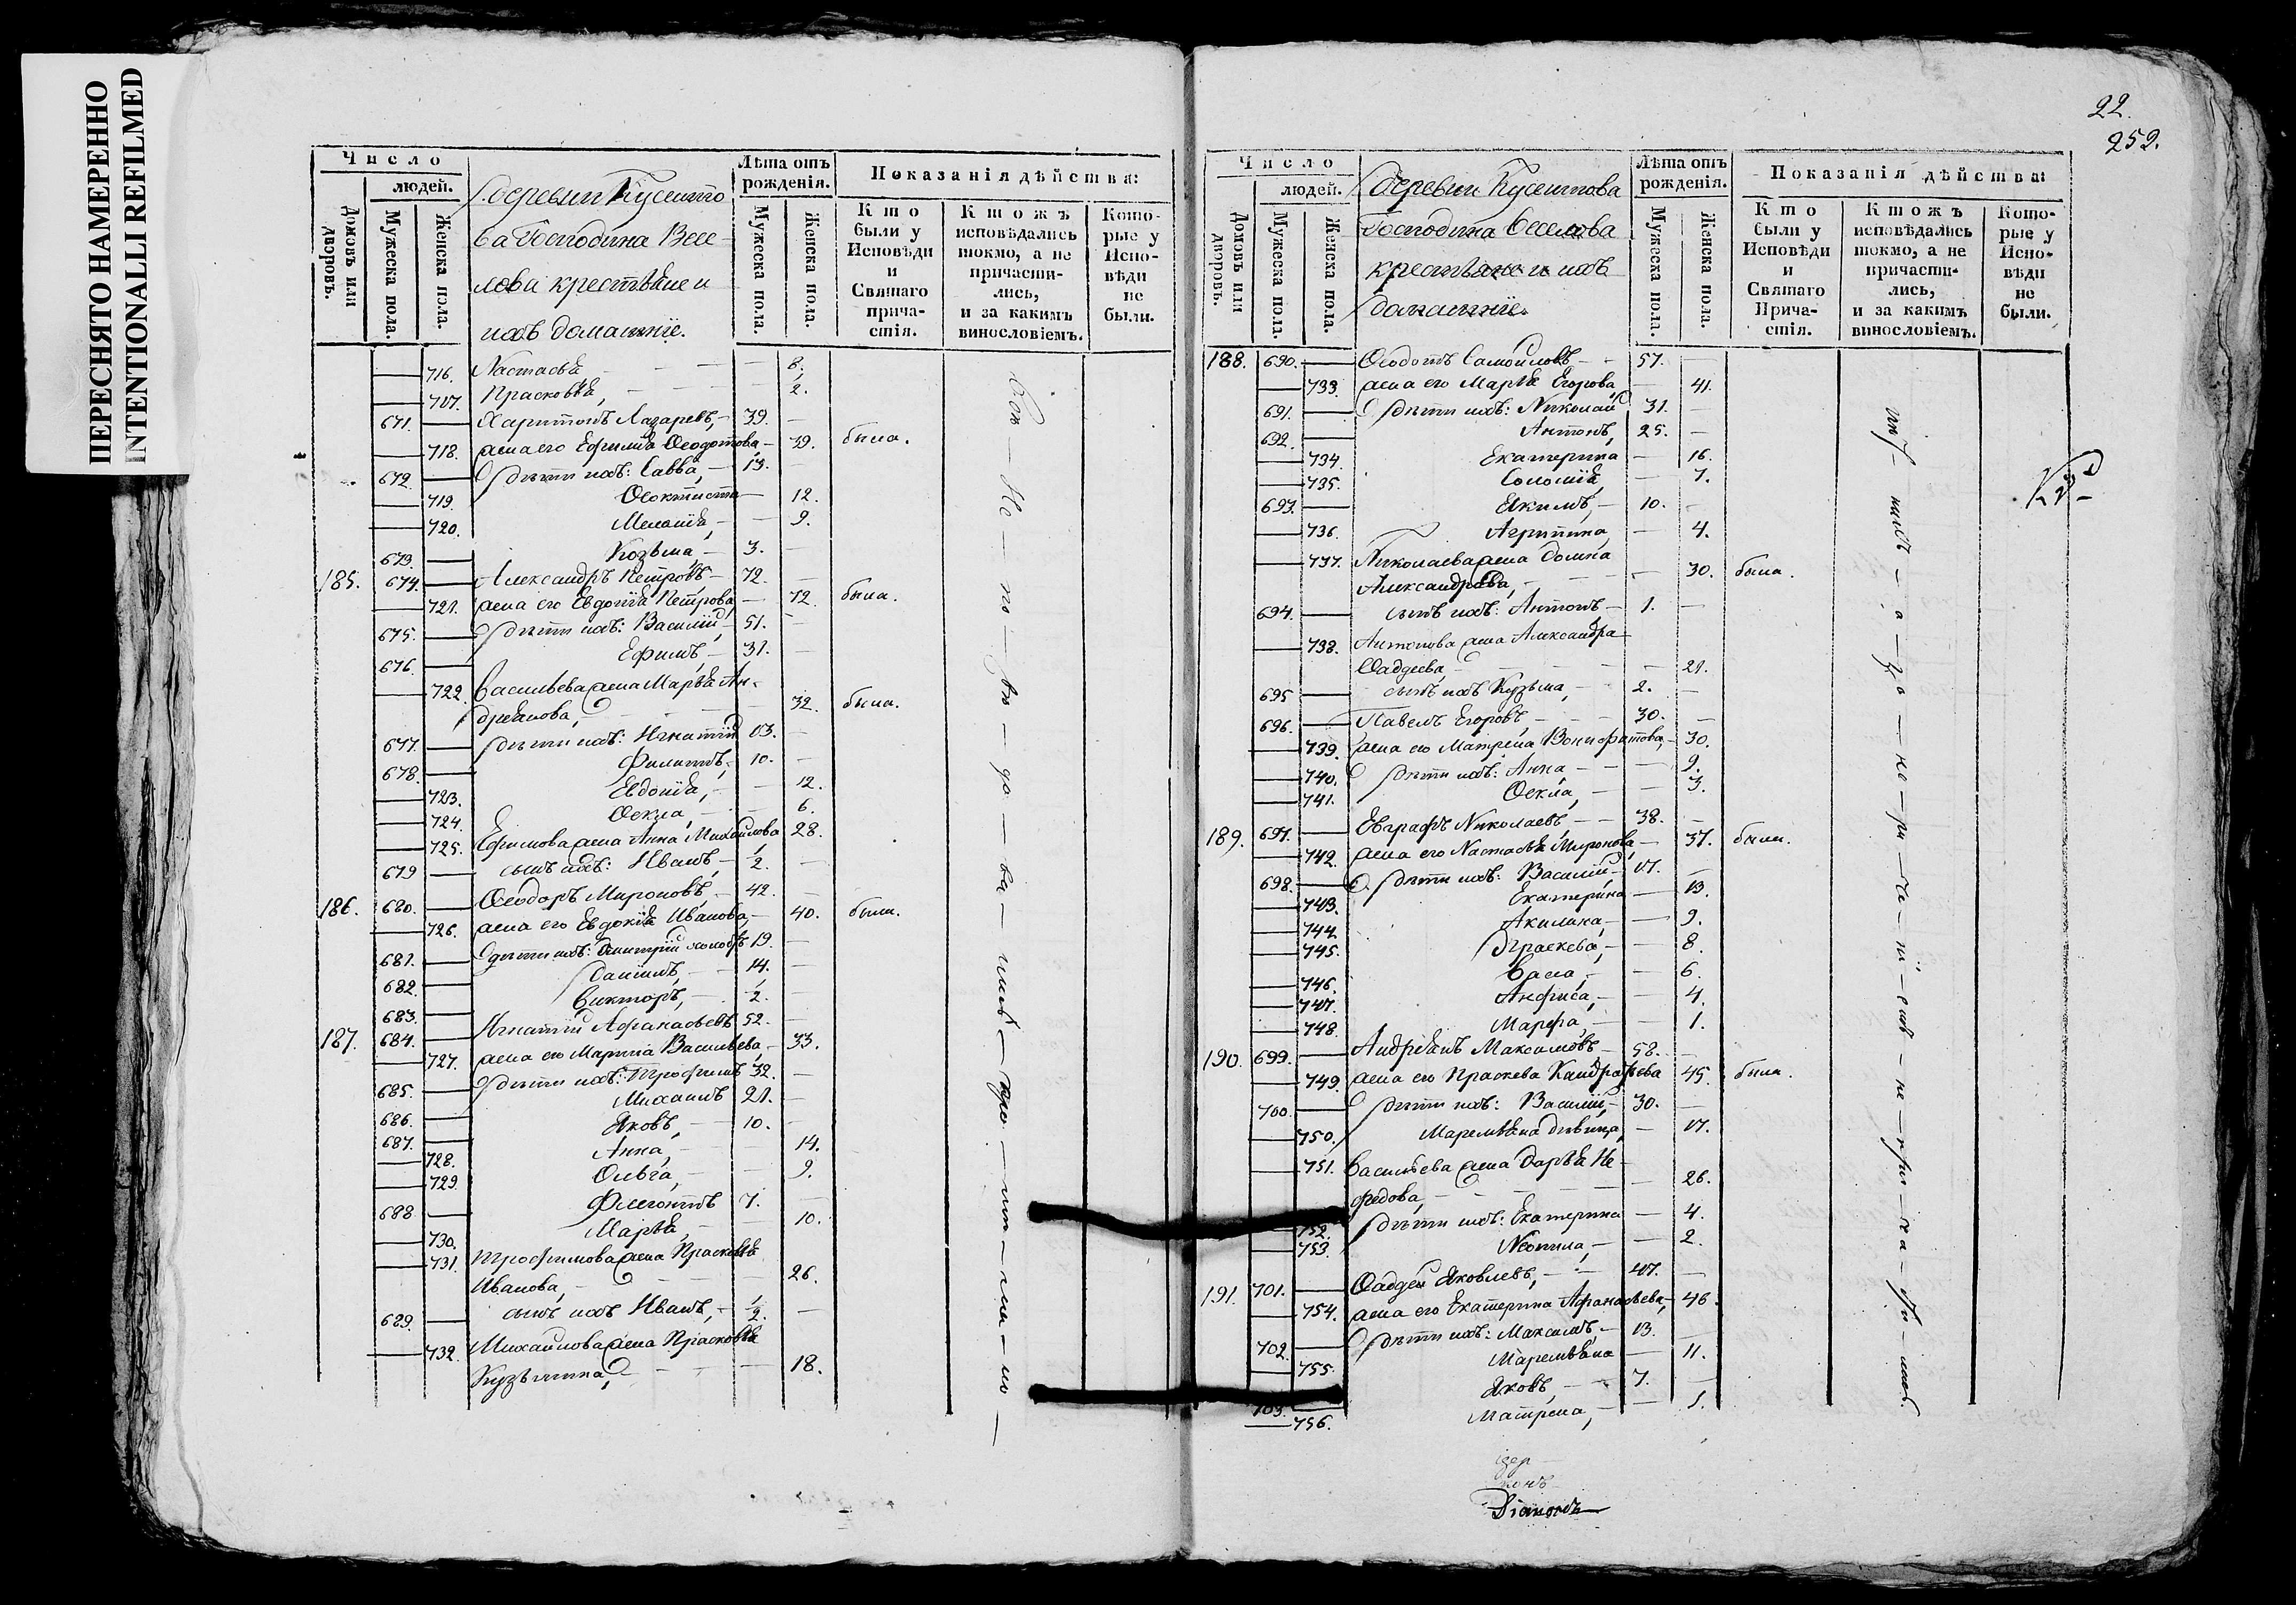 ПЕРЕСНЯТО НАМЕРЕННО
INTENTIONALLI REFILMED
22.
252.
Число
людей.
Домовъ или дворовъ.
Мужеска пола.
Женска пола.
Деревни Кусеито
ва Господина Весе-
лова крестьяне и
ихъ домашніе.
Лѣта отъ рожденія.
Мужеска пола.
Женска пола.
Показанія дѣйства:
Кто были у Исповѣди и Святаго причастія.
Ктожъ исповѣдались токмо, а не причастились, и за какимъ винословіемъ.
Которые у Исповѣди не были.
716. Настасья 8.
717. Прасковья, 2.
671. Харитонъ Лазаревъ, 39.
718. жена его Ефимія Ѳеодотова 39. были.
672. дѣти ихъ: Савва, 13.
719. Ѳеоктиста 12.
720. Меланія, 9.
673. Козьма, 3.
185. 674. Александръ Петровъ 72.
721. жена его Евдокія Петрова, 72. были.
675. дѣти ихъ: Василій, 51.
676. Ефимъ, 31.
722. Васильева жена Марья Ан-
дреянова, 32. были.
677. дѣти ихъ: Игнатій 13.
678. Филиппъ, 10.
723. Евдокія, 12.
724. Ѳекла, 6.
725. Ефимова жена Анна Михайлова 28.
679 сынъ ихъ: Иванъ, 2.
186. 680. Ѳеодоръ Мироновъ, 42.
726. жена его Евдокія Иванова, 40. были.
681. дѣти ихъ: Дмитрій холостъ 19.
682. Даніилъ, 14.
683. Викторъ, 2.
187. 684. Игнатій Афанасьевъ 52.
727. жена его Марина Васильева, 33.
685. дѣти ихъ: Трофимъ 32.
686. Михаилъ 21.
687. Яковъ, 10.
728. Анна, 14.
729. Ольга, 9.
688 Флегонтъ 7.
730. Марья, 10.
731. Трофимова жена Прасковья
Иванова, 26.
689. сынъ ихъ Иванъ, ½.
732. Михайлова жена Прасковья
Кузьмина, 18.
Число
людей.
Домовъ или дворовъ.
Мужеска пола.
Женска пола.
Деревни Кусеитова
Господина Веселова
крестьяне и ихъ
домашніе.
Лѣта отъ рожденія.
Мужеска пола.
Женска пола.
Показанія дѣйства:
Кто были у Исповѣди и Святаго Причастія.
Ктожъ исповѣдались токмо, а не причастились, и за какимъ винословіемъ.
Которые у Исповѣди не были.
188. 690. Ѳеодотъ Самойловъ 57.
733. жена его Марья Егорова 41.
691. дѣти ихъ: Николай 31.
692. Антонъ, 25.
734. Екатерина 16.
735. Соломія, 7.
693. Якимъ, 10.
736. Агрипина, 4.
737. Николаева жена Домна
Александрова, 30. были.
694. сынъ ихъ: Антонъ 1.
738. Антонова жена Александра
Ѳаддеева, 21.
695 сынъ ихъ Кузьма, 2.
696. Павелъ Егоровъ, 30.
739. жена его Матрена Вонифатова, 30.
740. дѣти ихъ: Анна 9.
741. Ѳекла, 3.
189. 697. Евграфъ Николаевъ 38.
742. жена его Настасья Миронова, 37. были.
698. дѣти ихъ: Василій 17.
743. Екатерина 13.
744. Акилина, 9.
745. Праскева, 8.
746. Васса, 6.
747. Анфиса, 4.
748. Марфа, 1.
190. 699. Андреянъ Максимовъ 58.
749. жена его Праскева Кандратьева 45. были.
700. дѣти ихъ: Василій, 30.
750. Маремьяна дѣвица, 17.
751. Васильева жена Дарья Не-
федова, 26.
752. дѣти ихъ: Екатерина 4.
753. Неонила, 2.
191. 701. Ѳаддей Яковлевъ, 47.
754. жена его Екатерина Афанасьева, 46.
702. дѣти ихъ: Максимъ, 13.
755. Маремьяна 11.
703. Яковъ, 7.
756. Матрена, 1.
Діаконъ